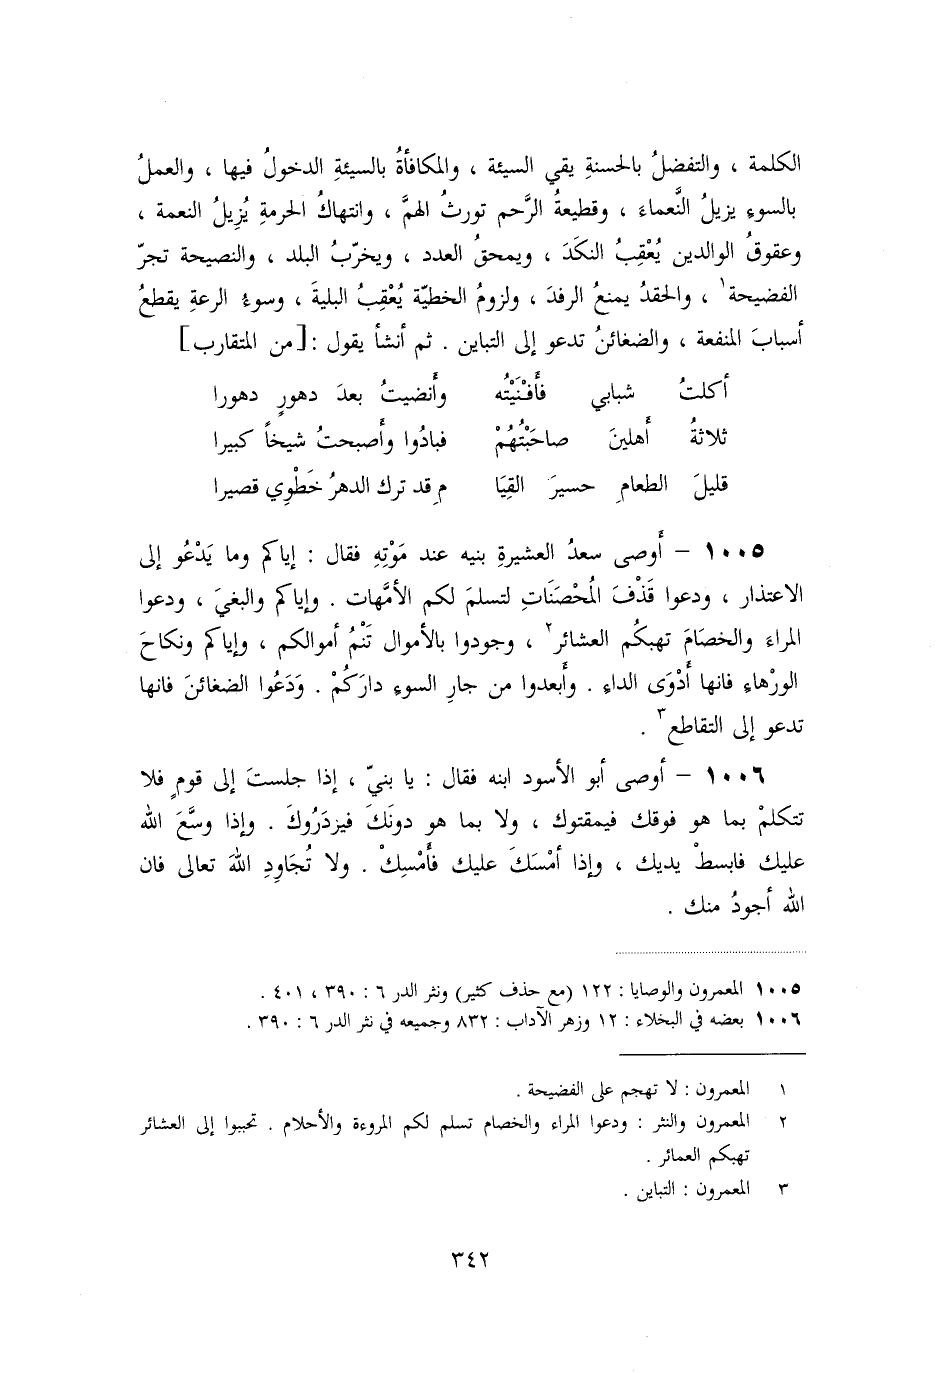 الكلمة ، والتفضلُ بالحسنةِ يقي السيئة ، والمكافأةُ بالسيئةِ الدخولُ فيها ، والعملُ
بالسوءِ يزيلُ النَّعماءَ ، وقطيعةُ الرَّحم تورثُ الهمَّ ، وانتهاكُ الحرمةِ يُزِيلُ النعمة ،
وعقوقُ الوالدين يُعْقِبُ النكَدَ ، ويمحقُ العدد ، ويخرّبُ البلد ، والنصيحة تجرّ
الفضيحة١ ، والحقدُ يمنعُ الرفدَ ، ولزومُ الخطيّة يُعْقِبُ البليةَ ، وسوءُ الرعةِ يقطعُ
أسبابَ المنفعة ، والضغائنُ تدعو إلى التباين . ثم أنشأ يقول : [من المتقارب]
أكلتُ شبابي فأَفْنَيْتُه وأَنضيتُ بعدَ دهورٍ دهورا
ثلاثةُ أَهلينَ صاحَبْتُهُمْ فبادُوا وأَصبحتُ شيخاً كبيرا
قليلَ الطعامِ حسيرَ القِيَا مِ قد ترك الدهرُ خَطْوِي قصيرا
١٠٠٥ – أَوصى سعدُ العشيرةِ بنيه عند مَوْتِهِ فقال : إياكم وما يَدْعُو إلى
الاعتذار ، ودعوا قَذْفَ المُحْصَنَاتِ لتسلمَ لكم الأمَّهات . وإياكم والبغيَ ، ودعوا
المراءَ والخصَامَ تهبكُم العشائر٢ ، وجودوا بالأموال تَنْمُ أموالكم ، وإياكم ونكاحَ
الورْهاءِ فانها أَدْوَى الداءِ . وأَبعدوا من جارِ السوءِ دارَكُمْ . وَدَعُوا الضغائنَ فانها
تدعو إلى التقاطع٣ .
١٠٠٦ – أوصى أبو الأسود ابنه فقال : يا بنيّ ، إذا جلستَ إلى قومٍ فلا
تتكلمْ بما هو فوقك فيمقتوك ، ولا بما هو دونَكَ فيزدَرُوكَ . وإذا وسَّعَ الله
عليك فابسطْ يديك ، وإذا أمْسَكَ عليك فأَمْسِكْ . ولا تُجَاوِدِ اللهَ تعالى فان
الله أجودُ منك .
١٠٠٥ المعمرون والوصايا : ١٢٢ (مع حذف كثير) ونثر الدر ٦ : ٣٩٠ ، ٤٠١ .
١٠٠٦ بعضه في البخلاء : ١٢ وزهر الآداب : ٨٣٢ وجميعه في نثر الدر ٦ : ٣٩٠ .
١ المعمرون : لا تهجم على الفضيحة .
٢ المعمرون والنثر : ودعوا المراء والخصام تسلم لكم المروءة والأحلام . تحببوا إلى العشائر
تهبكم العمائر .
٣ المعمرون : التباين .
٣٤٢